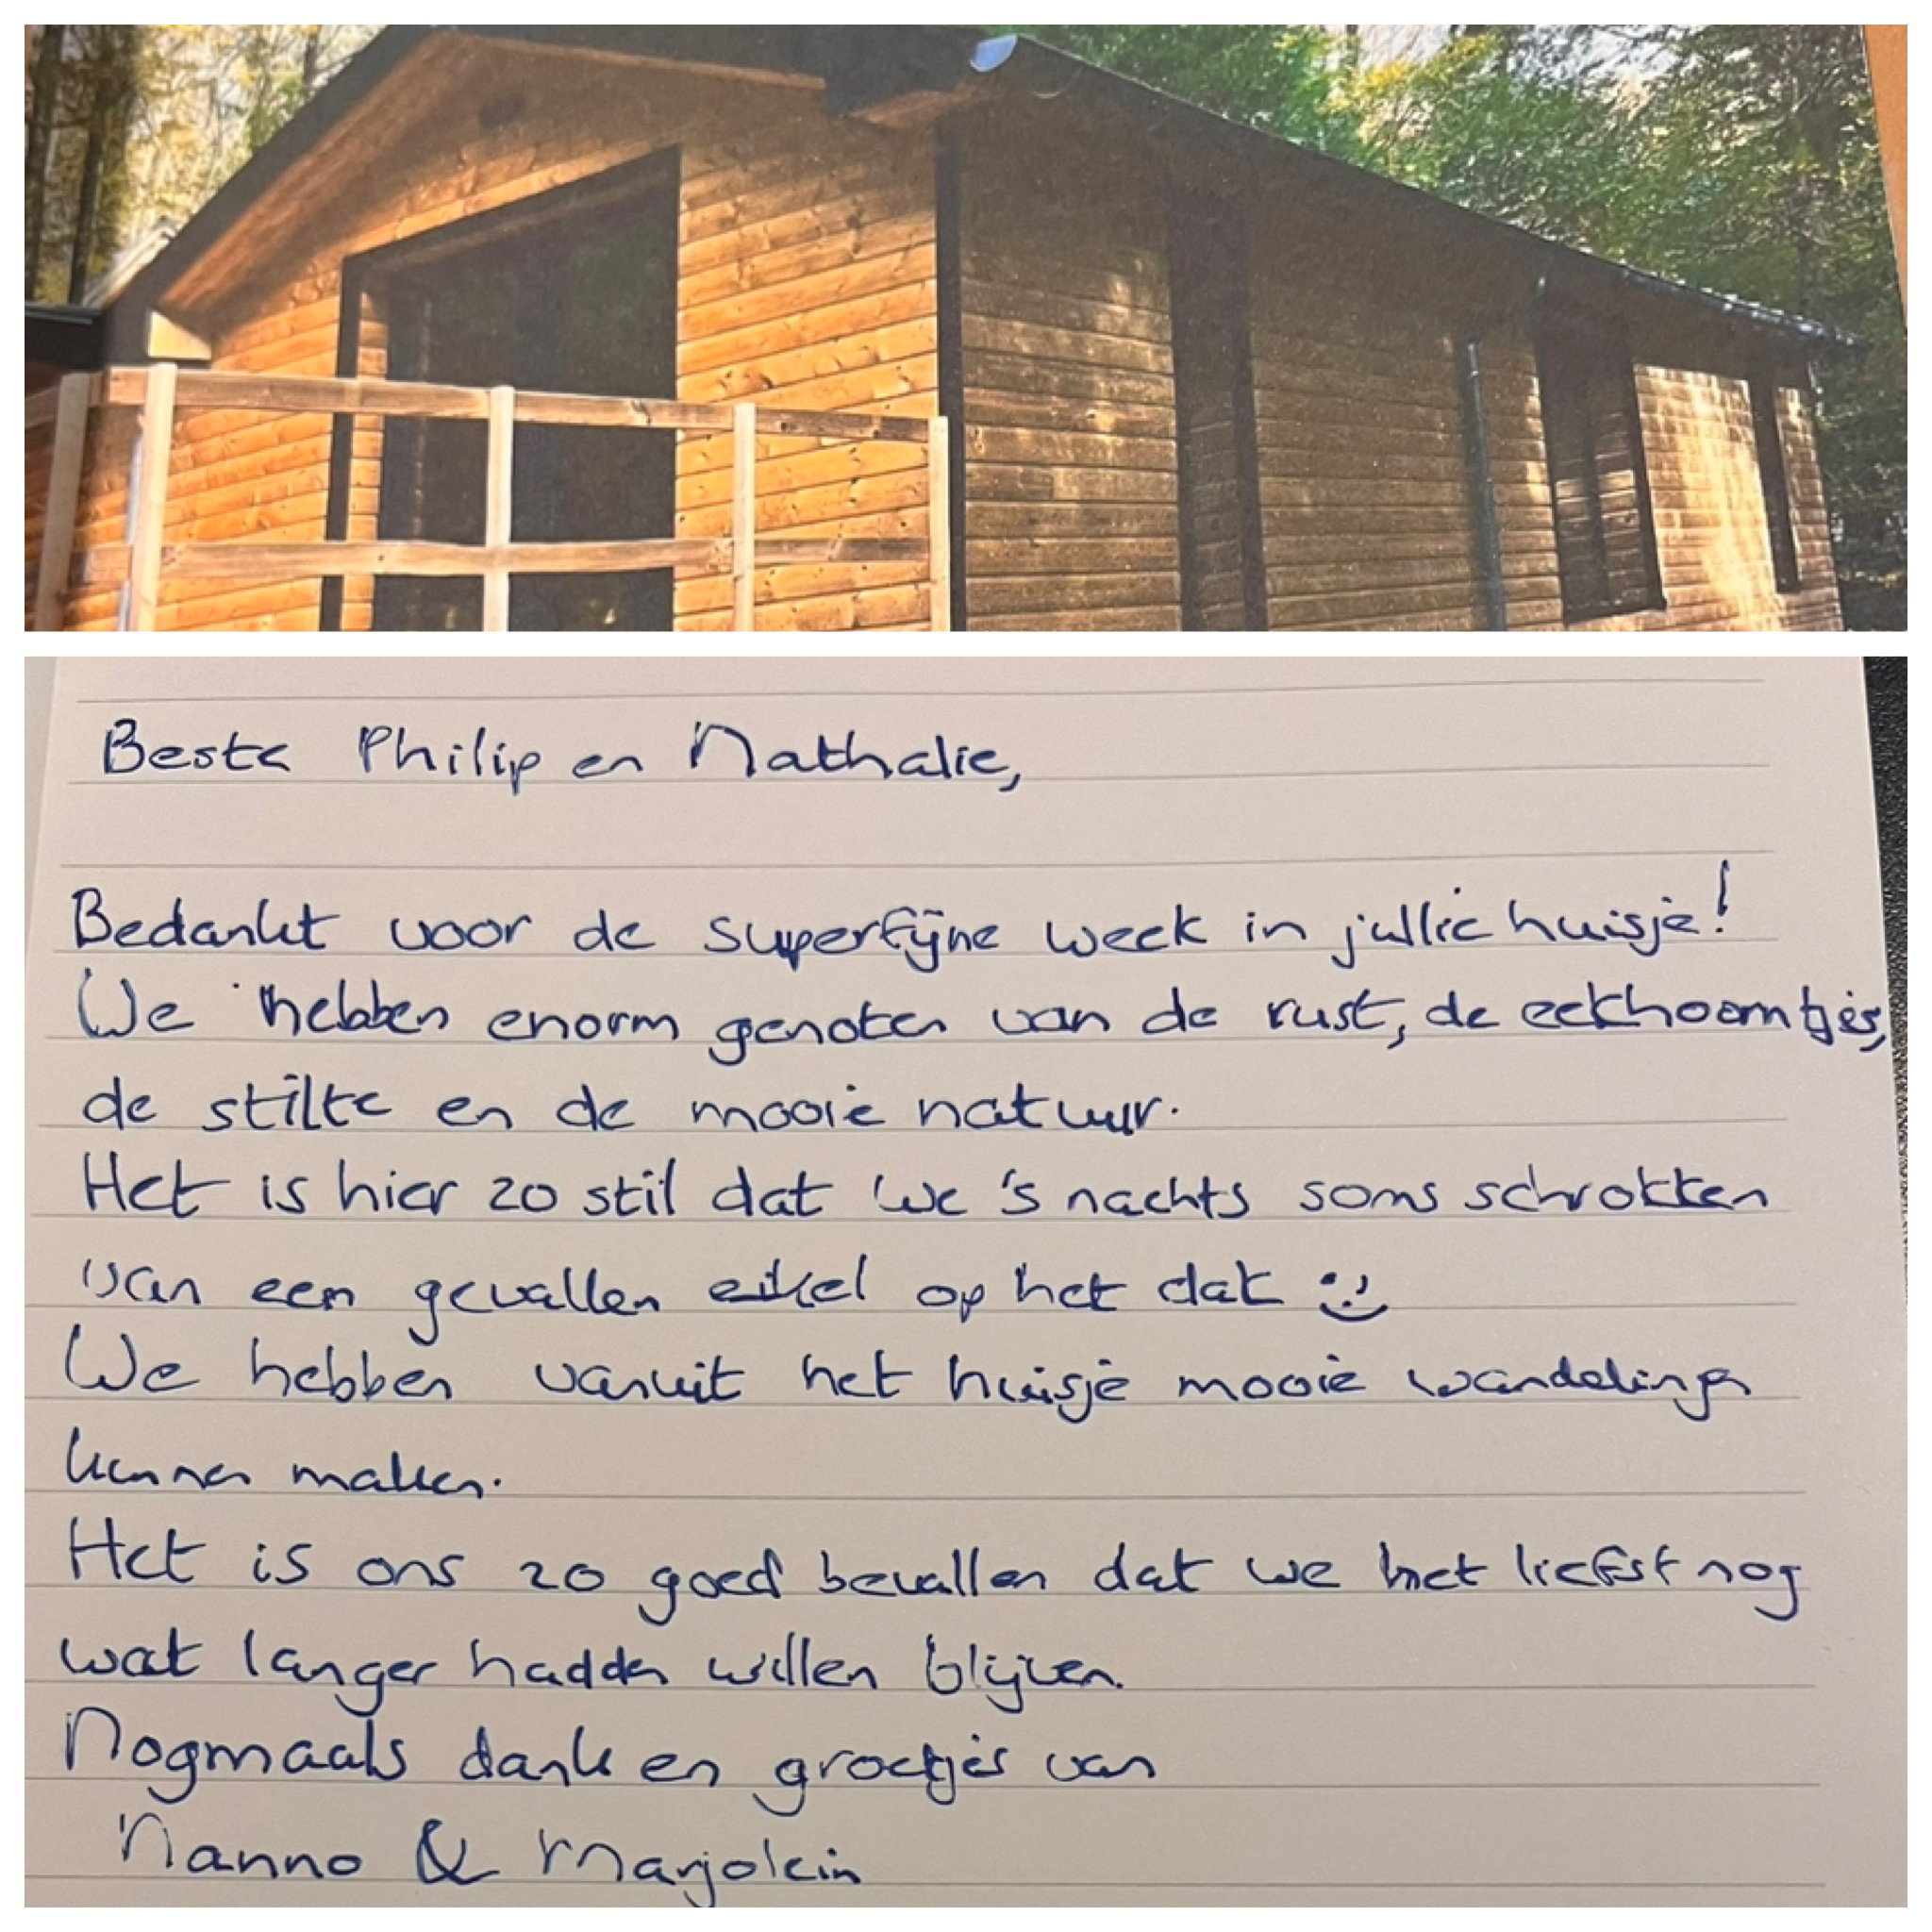 Beste Philip en Nathalie,
Bedankt voor de superfijne week in jullie huisje!
We hebben enorm genoten van de rust, de eekhoorntjes,
de stilte en de mooie natuur.
Het is hier zo stil dat we 's nachts soms schrokken
van een gevallen eikel op het dak :)
We hebben vanuit het huisje mooie wandelingen
kunnen maken.
Het is ons zo goed bevallen dat we het liefst nog
wat langer hadden willen blijven.
Nogmaals dank en groetjes van
Nanno & Marjolein